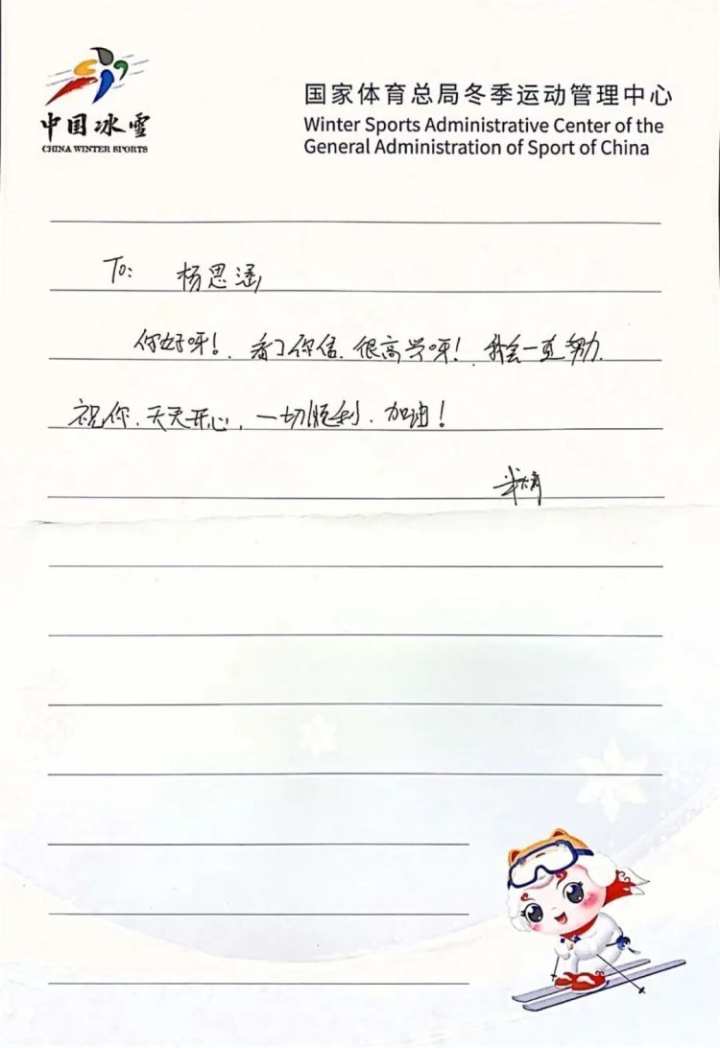 中国冰雪
CHINA WINTER SPORTS
国家体育总局冬季运动管理中心
Winter Sports Administrative Center of the
General Administration of Sport of China
To: 杨思涵
你好呀！看了你信.很高兴呀！我会一直努力.
祝你.天天开心，一切顺利.加油！